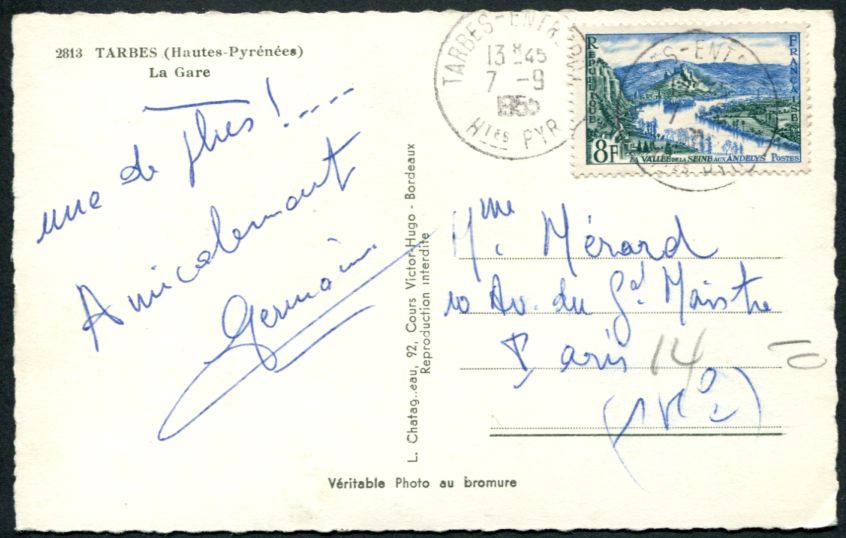 2813 TARBES (Hautes-Pyrénées)
La Gare
une de plus! ....
Amicalement
Germaine
L. Chatag..eau, 92, Cours Victor-Hugo - Bordeaux
Reproduction interdite
Véritable Photo au bromure
TARBES-ENTREPOT
13 H 45
7 -9
1955
Htes PYR
REPUBLIQUE FRANÇAISE
8F
LA VALLÉE DE LA SEINE AUX ANDELYS POSTES
Mme Mérard
10 Av. du Gal Maistre
Paris 14